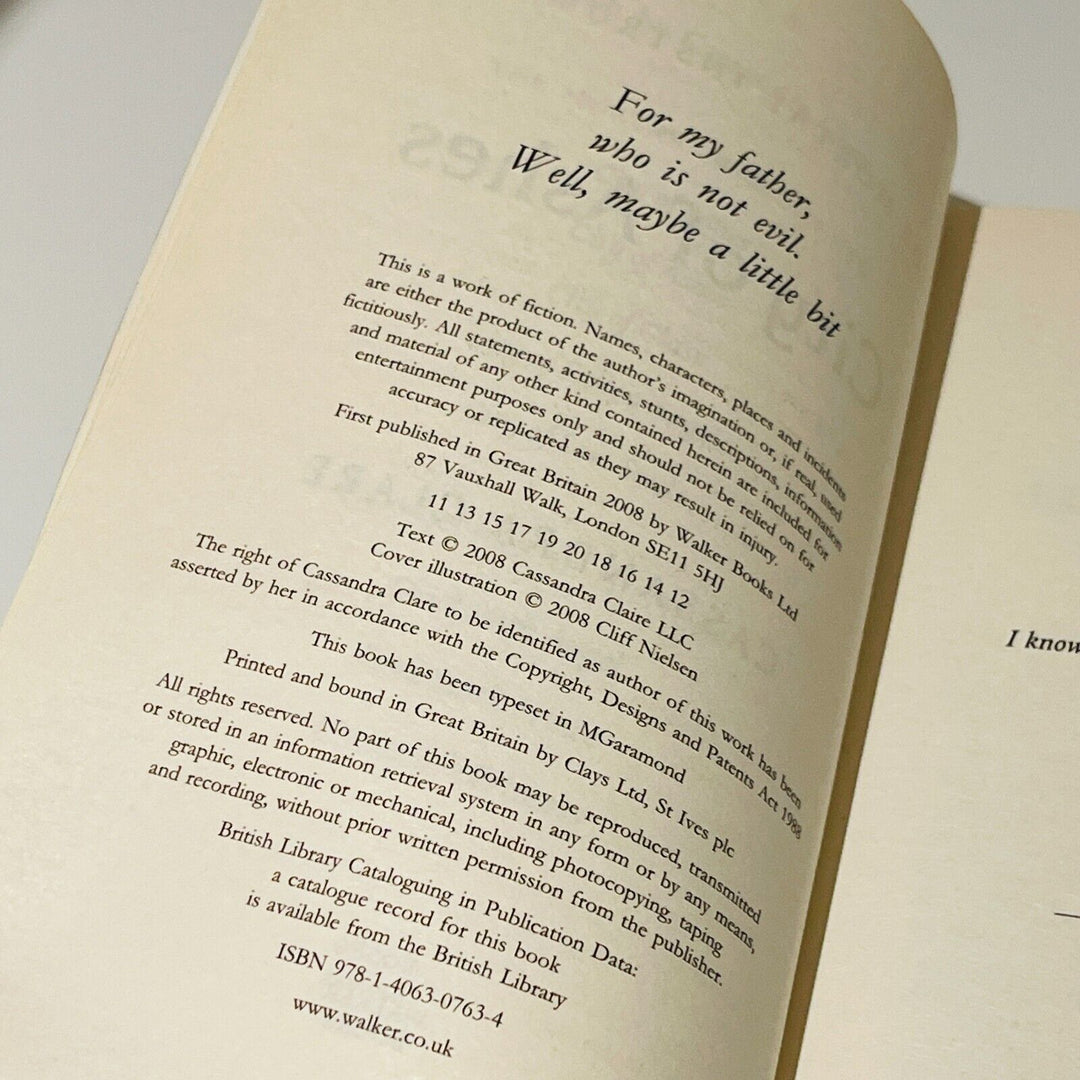 For my father,
who is not evil.
Well, maybe a little bit
This is a work of fiction. Names, characters, places and incidents
are either the product of the author's imagination or, if real, used
fictitiously. All statements, activities, stunts, descriptions, information
and material of any other kind contained herein are included for
entertainment purposes only and should not be relied on for
accuracy or replicated as they may result in injury.
First published in Great Britain 2008 by Walker Books Ltd
87 Vauxhall Walk, London SE11 5HJ
11 13 15 17 19 20 18 16 14 12
Text © 2008 Cassandra Claire LLC
Cover illustration © 2008 Cliff Nielsen
The right of Cassandra Clare to be identified as author of this work has been
asserted by her in accordance with the Copyright, Designs and Patents Act 1988
This book has been typeset in MGaramond
Printed and bound in Great Britain by Clays Ltd, St Ives plc
All rights reserved. No part of this book may be reproduced, transmitted
or stored in an information retrieval system in any form or by any means,
graphic, electronic or mechanical, including photocopying, taping
and recording, without prior written permission from the publisher.
British Library Cataloguing in Publication Data:
a catalogue record for this book
is available from the British Library
ISBN 978-1-4063-0763-4
www.walker.co.uk
I know